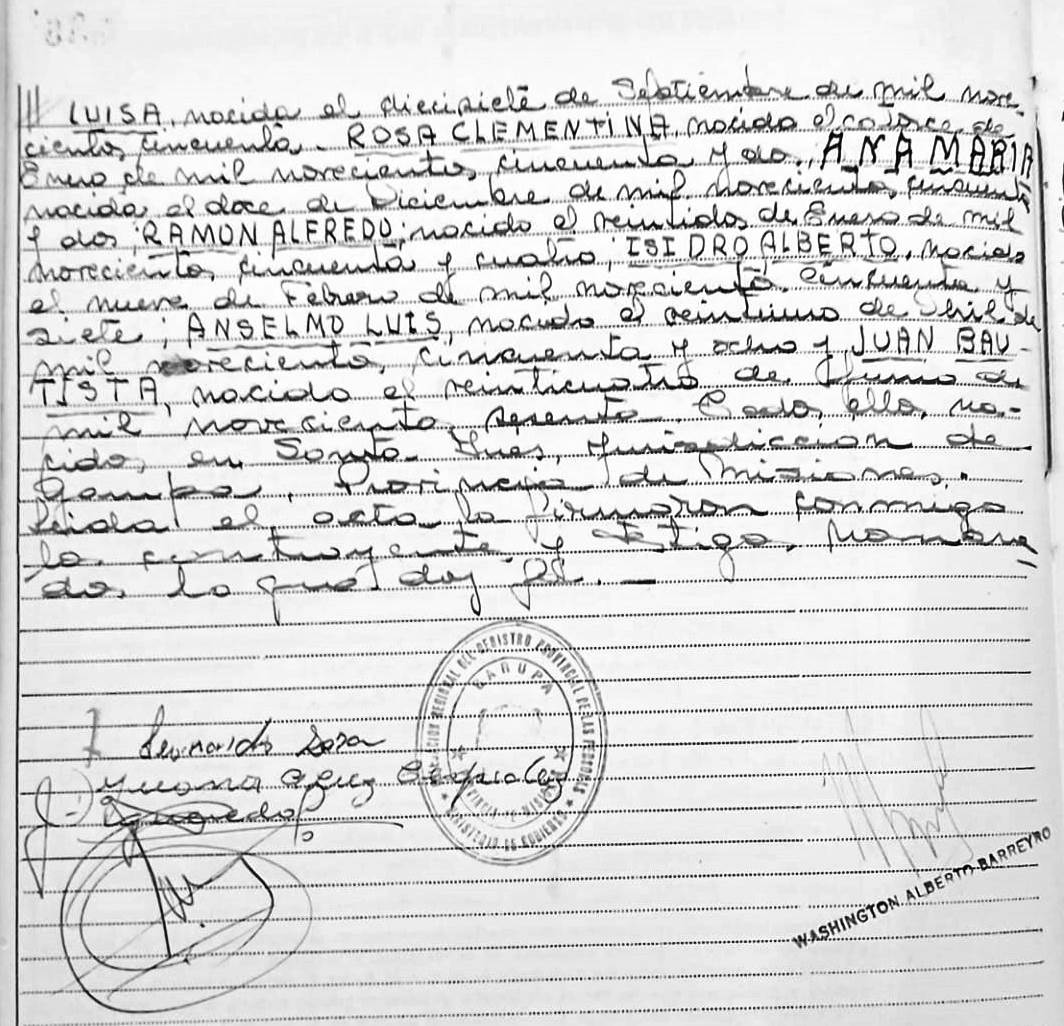 LUISA, nacida el diecisiete de Septiembre de mil nove-
cientos cincuenta. ROSA CLEMENTINA, nacida el catorce de
Enero de mil novecientos cincuenta y dos, ANA MARIA
nacida el doce de Diciembre de mil novecientos cincuenta
y dos; RAMON ALFREDO; nacido el veintidos de Enero de mil
novecientos cincuenta y cuatro; ISIDRO ALBERTO, nacido
el nueve de Febrero de mil novecientos cincuenta y
siete; ANSELMO LUIS, nacido el veintiuno de Abril de
mil novecientos cincuenta y ocho y JUAN BAU-
TISTA, nacido el veinticuatro de Junio de
mil novecientos sesenta. Todos ellos na-
cidos en Santa Ines, Jurisdiccion de
Garupa, Provincia de Misiones.
Leida el acta la firmaron conmigo
los contrayentes y testigos nombra-
dos lo que doy fé. —
REGIONAL DEL REGISTRO PROVINCIAL DE LAS PERSONAS
GARUPA
PROVINCIA DE MISIONES
MINISTERIO DE GOBIERNO
Leonardo Sosa
WASHINGTON ALBERTO BARREYRO